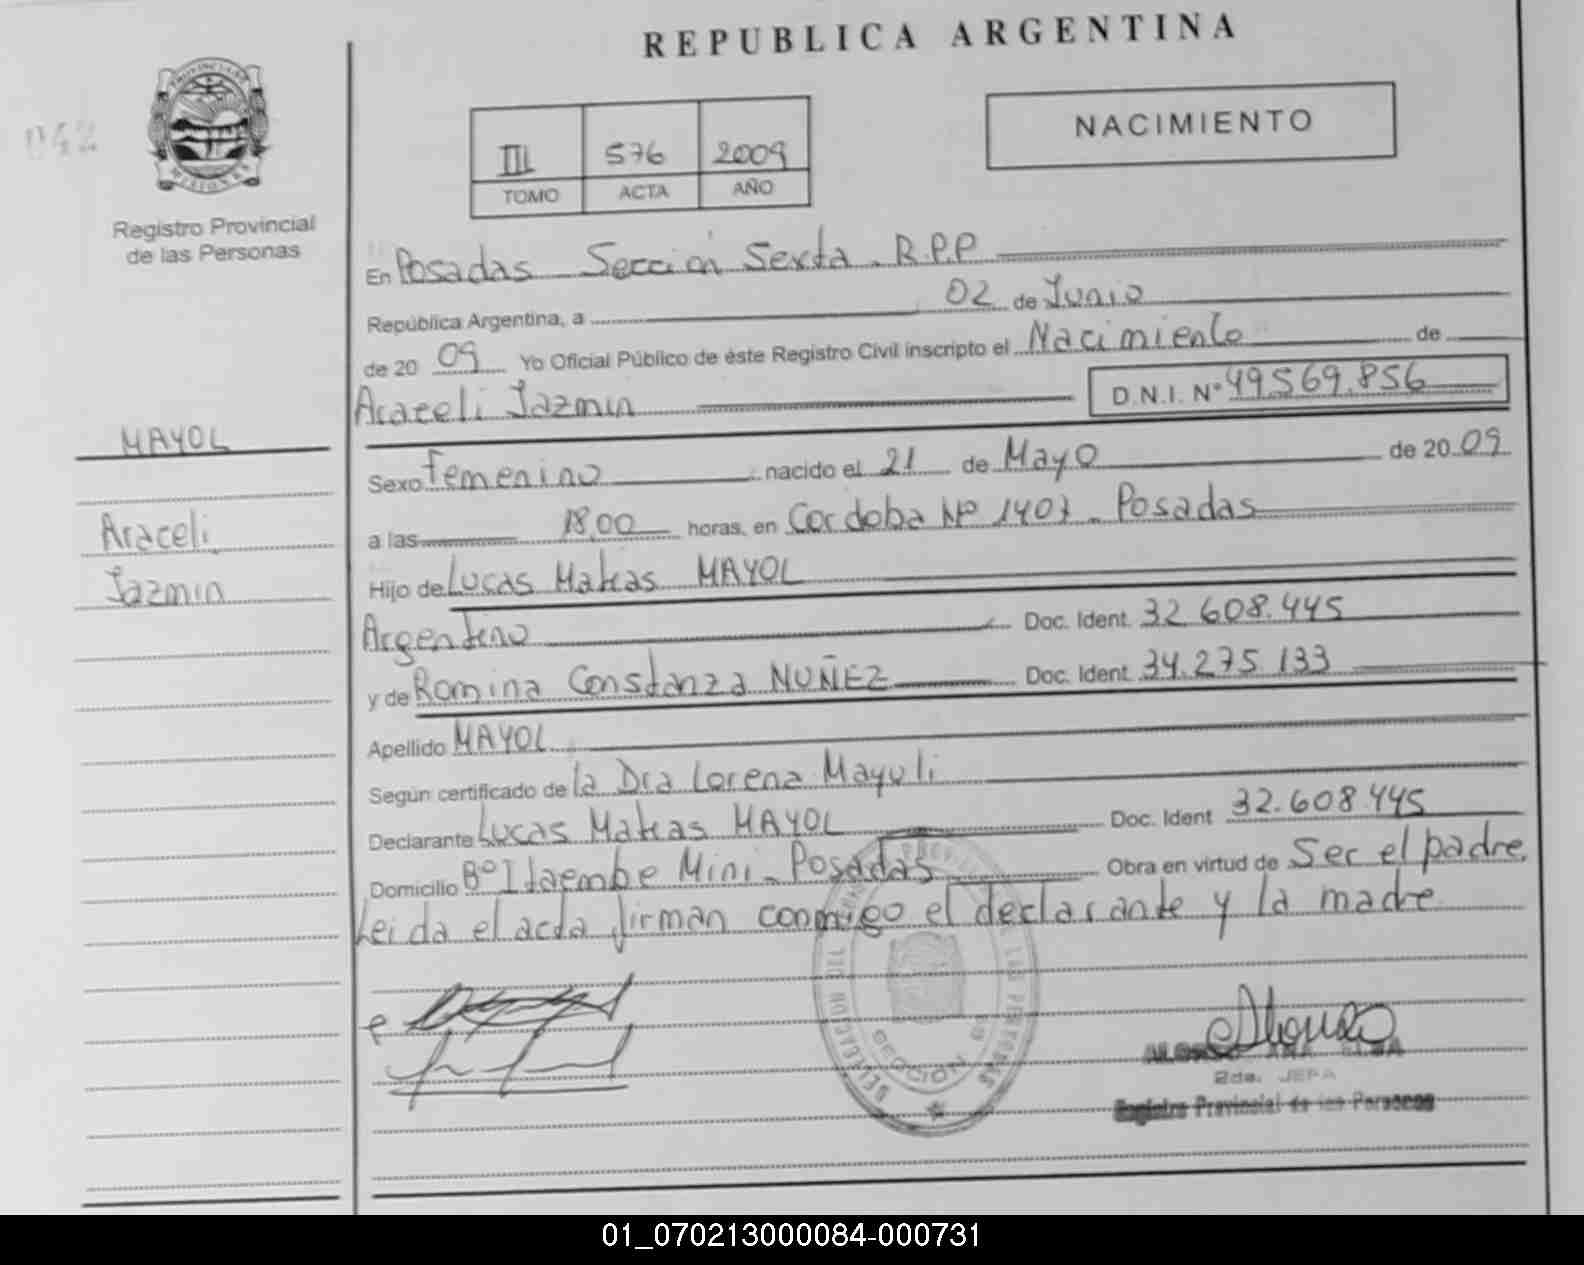 REPUBLICA ARGENTINA
042
PROVINCIA DE
MISIONES
Registro Provincial
de las Personas
III 576 2009
TOMO ACTA AÑO
NACIMIENTO
En Posadas Sección Sexta. R.P.P
República Argentina, a 02 de Junio
de 20 09 Yo Oficial Público de éste Registro Civil inscripto el Nacimiento de
Araceli Jazmin D.N.I. Nº 49.569.856
MAYOL
Araceli
Jazmin
Sexo Femenino nacido el 21 de Mayo de 20 09
a las 18,00 horas, en Cordoba Nº 1407 - Posadas
Hijo de Lucas Matias MAYOL
Argentino Doc. Ident. 32.608.445
y de Romina Constanza NUÑEZ Doc. Ident. 34.275.133
Apellido MAYOL
Según certificado de la Dra Lorena Mayuli
Declarante Lucas Matias MAYOL Doc. Ident 32.608.445
Domicilio Bº Itaembe Mini - Posadas Obra en virtud de Ser el padre.
Leida el acta firman conmigo el declarante y la madre
SECCION
LAS PERSONAS
2da. JEFA
Registro Provincial de las Personas
01_070213000084-000731